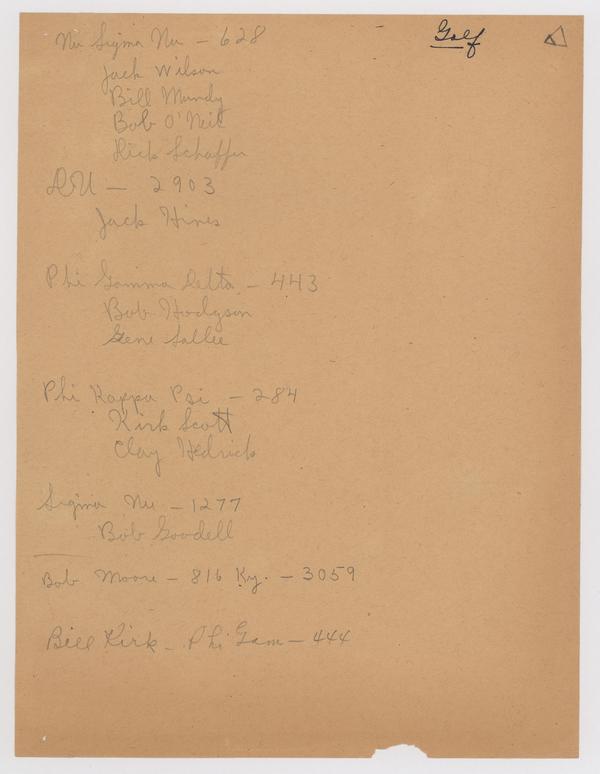 Golf
Nu Sigma Nu - 628
Jack Wilson
Bill Mundy
Bob O'Neil
Dick Schaffer
DU - 2903
Jack Hines
Phi Gamma Delta - 443
Bob Hodgson
Gene Sallee
Phi Kappa Psi - 284
Kirk Scott
Clay Hedrick
Sigma Nu - 1277
Bob Goodell
Bob Moore - 816 Ky. - 3059
Bill Kirk - Phi Gam - 444